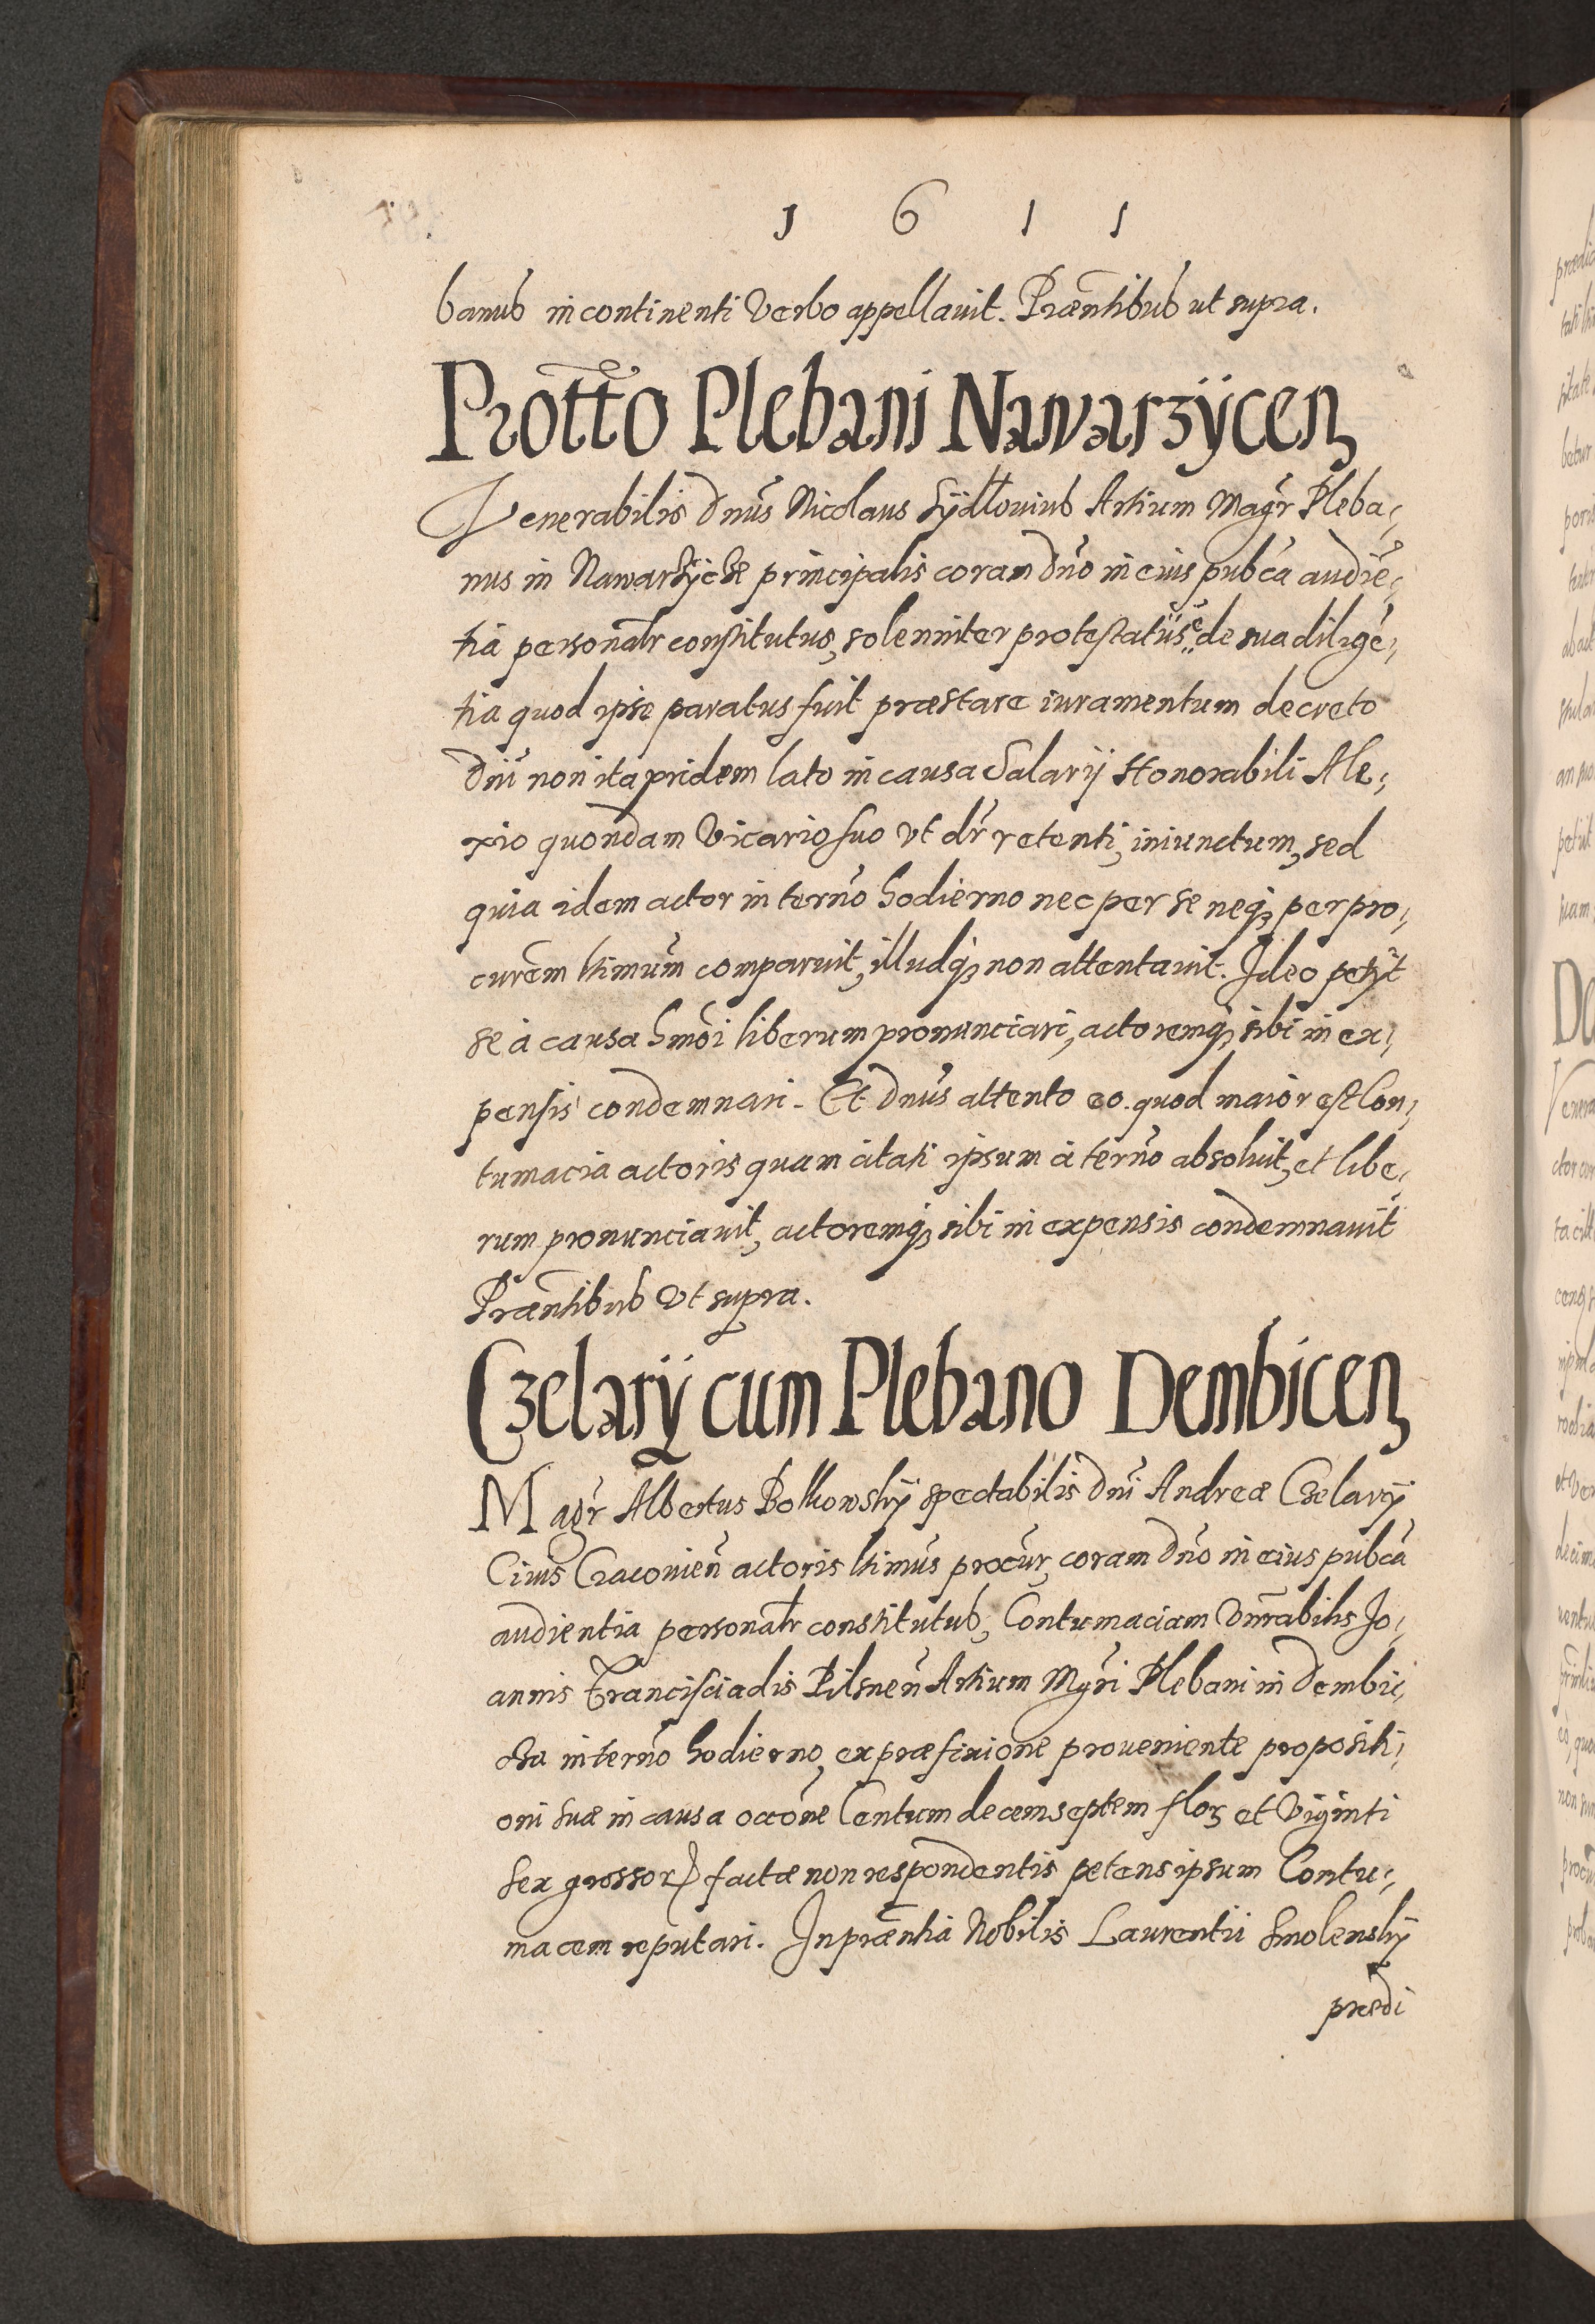 1 6 1 1
banus in continenti verbo appellavit. Præntibus ut supra.
Protto Plebani Nawarzÿcen
Venerabilis Dnus Nicolaus Sÿdlovius Artium Magr Pleba,
nus in Nawarzÿcze principalis coram Dno in eius pubca audiē,
tia personalr constitutus, solenniter protestatus de sua diligē,
tia quod ipse paratus fuit præstare iuramentum decreto
Dni non ita pridem lato in causa Salarij Honorabili Ale,
xio quondam Vicario suo ut dr retenti, iniunctum, sed
quia idem actor in terno hodierno nec per se neq; per pro,
curem ltimum comparuit, illudq; non attentavit. Ideo petijt
se à causa hmoi liberum pronunciari, actoremq; sibi in ex,
pensis condemnari. Et Dnus attento eo quod maior est con,
tumacia actoris quam citati ipsum à terno absolvit, et libe,
rum pronunciavit, actoremq; sibi in expensis condemnavit
Præntibus ut supra.
Czelarÿ cum Plebano Dembicen
Magr Albertus Bolkowskÿ spectabilis Dni Andreæ Czelarÿ
Civis Cracovien actoris ltimus procur, coram Dno in eius pubca
audientia personalr constitutus, Contumaciam Vnrabilis Jo,
annis Francisciadis Pilsnen Artium Mgri Plebani in Dembi,
cza in terno hodierno, ex præfixione proveniente propositi,
oni suæ in causa occone Centum decem septem flor et Viginti
sex grossor factæ non respondentis petens ipsum Contu,
macem reputari. In præntia Nobilis Laurentii Smolenskÿ
prædi